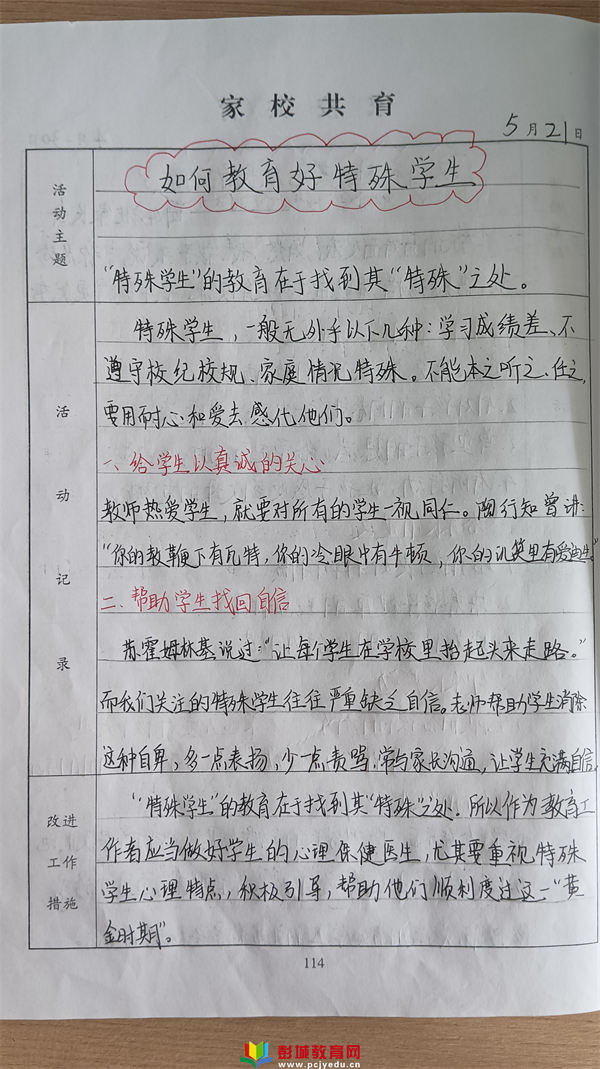 家校共育
5月21日
活动主题
如何教育好特殊学生
“特殊学生”的教育在于找到其“特殊”之处。
活动记录
特殊学生，一般无外乎以下几种：学习成绩差、不
遵守校纪校规、家庭情况特殊。不能本之听之、任之，
要用耐心和爱去感化他们。
一、给学生以真诚的关心
教师热爱学生，就要对所有的学生一视同仁。陶行知曾讲：
“你的教鞭下有瓦特，你的冷眼中有牛顿，你的讥笑里有爱迪生。”
二、帮助学生找回自信
苏霍姆林基说过：“让每个学生在学校里抬起头来走路。”
而我们关注的特殊学生往往严重缺乏自信。老师帮助学生消除
这种自卑，多一点表扬，少一点责骂.常与家长沟通，让学生充满自信。
改进工作措施
“特殊学生”的教育在于找到其“特殊”之处.所以作为教育工
作者应当做好学生的心理保健医生，尤其要重视特殊
学生心理特点，积极引导，帮助他们顺利度过这一“黄
金时期”。
114
彭城教育网
www.pcjyedu.cn